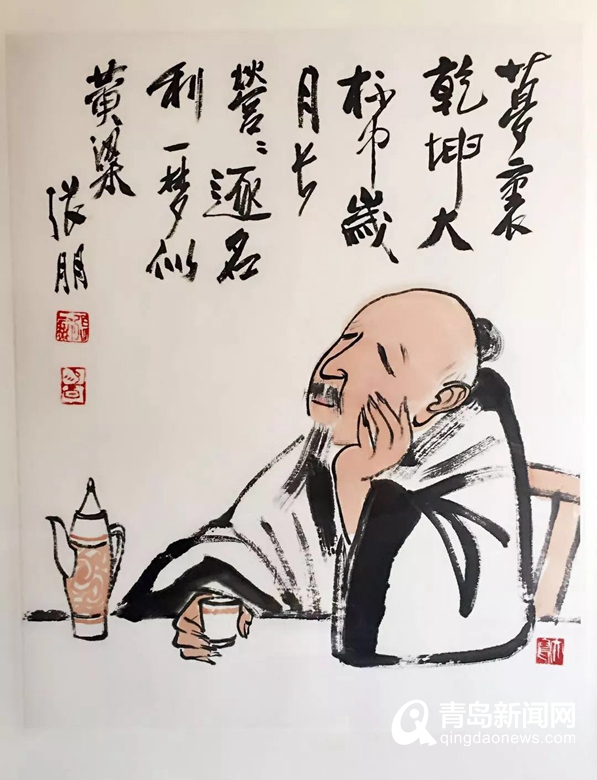 夢裏
乾坤大
杯中歲
月长
營〻逐名
利一梦似
黄粱
张朋
青岛新闻网
qingdaonews.com